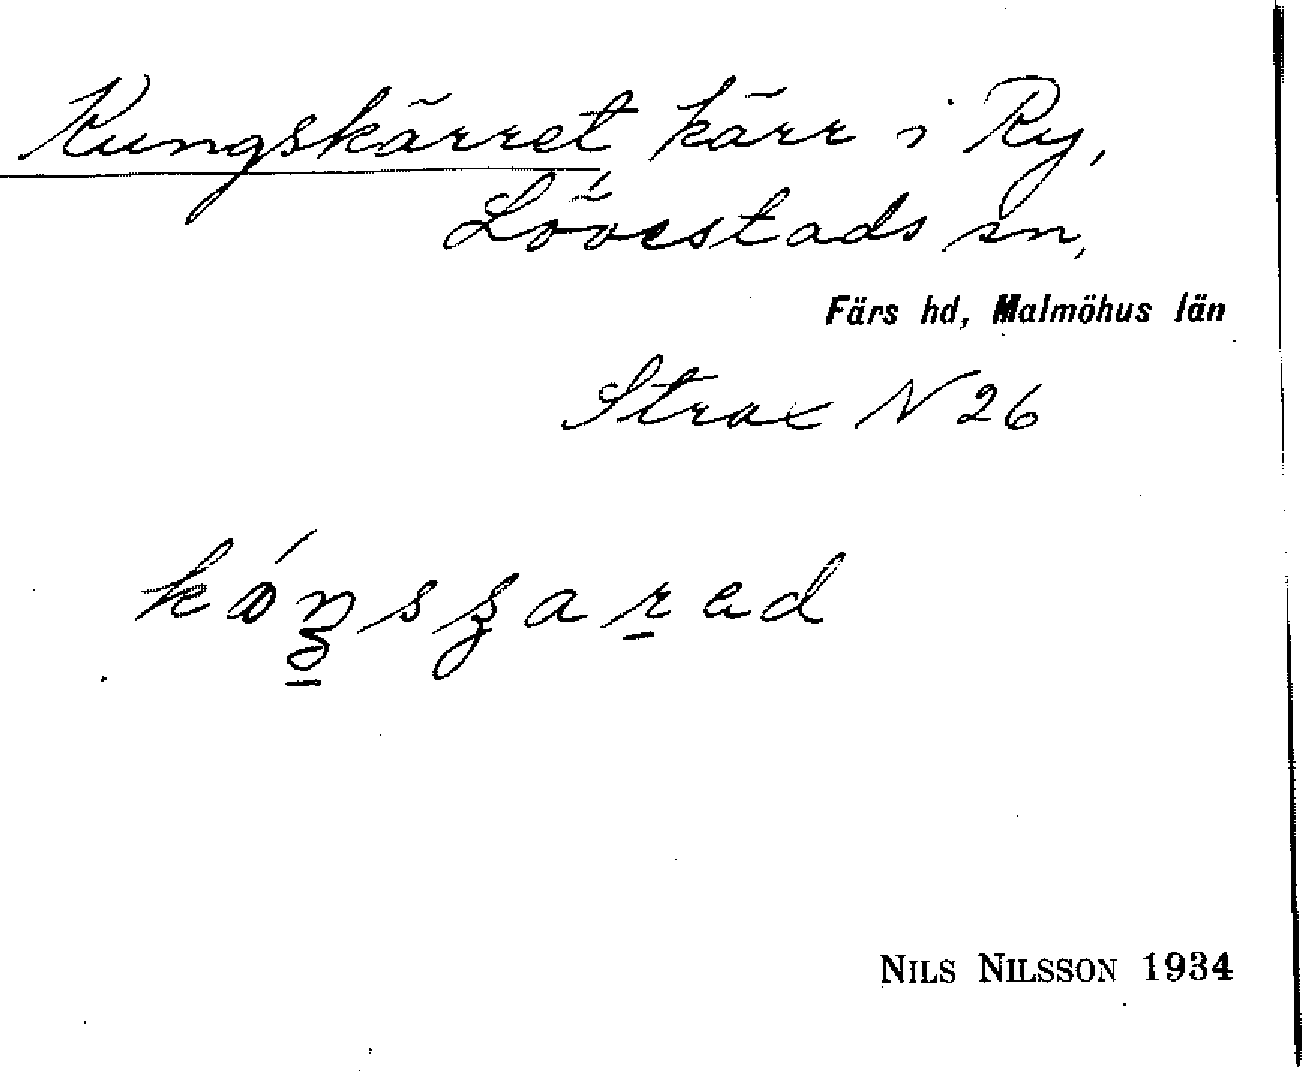 Kungskärret kärr i Ry,
Lövestads sn,
Färs hd, Malmöhus län
Strax N 26
NILS NILSSON 1934